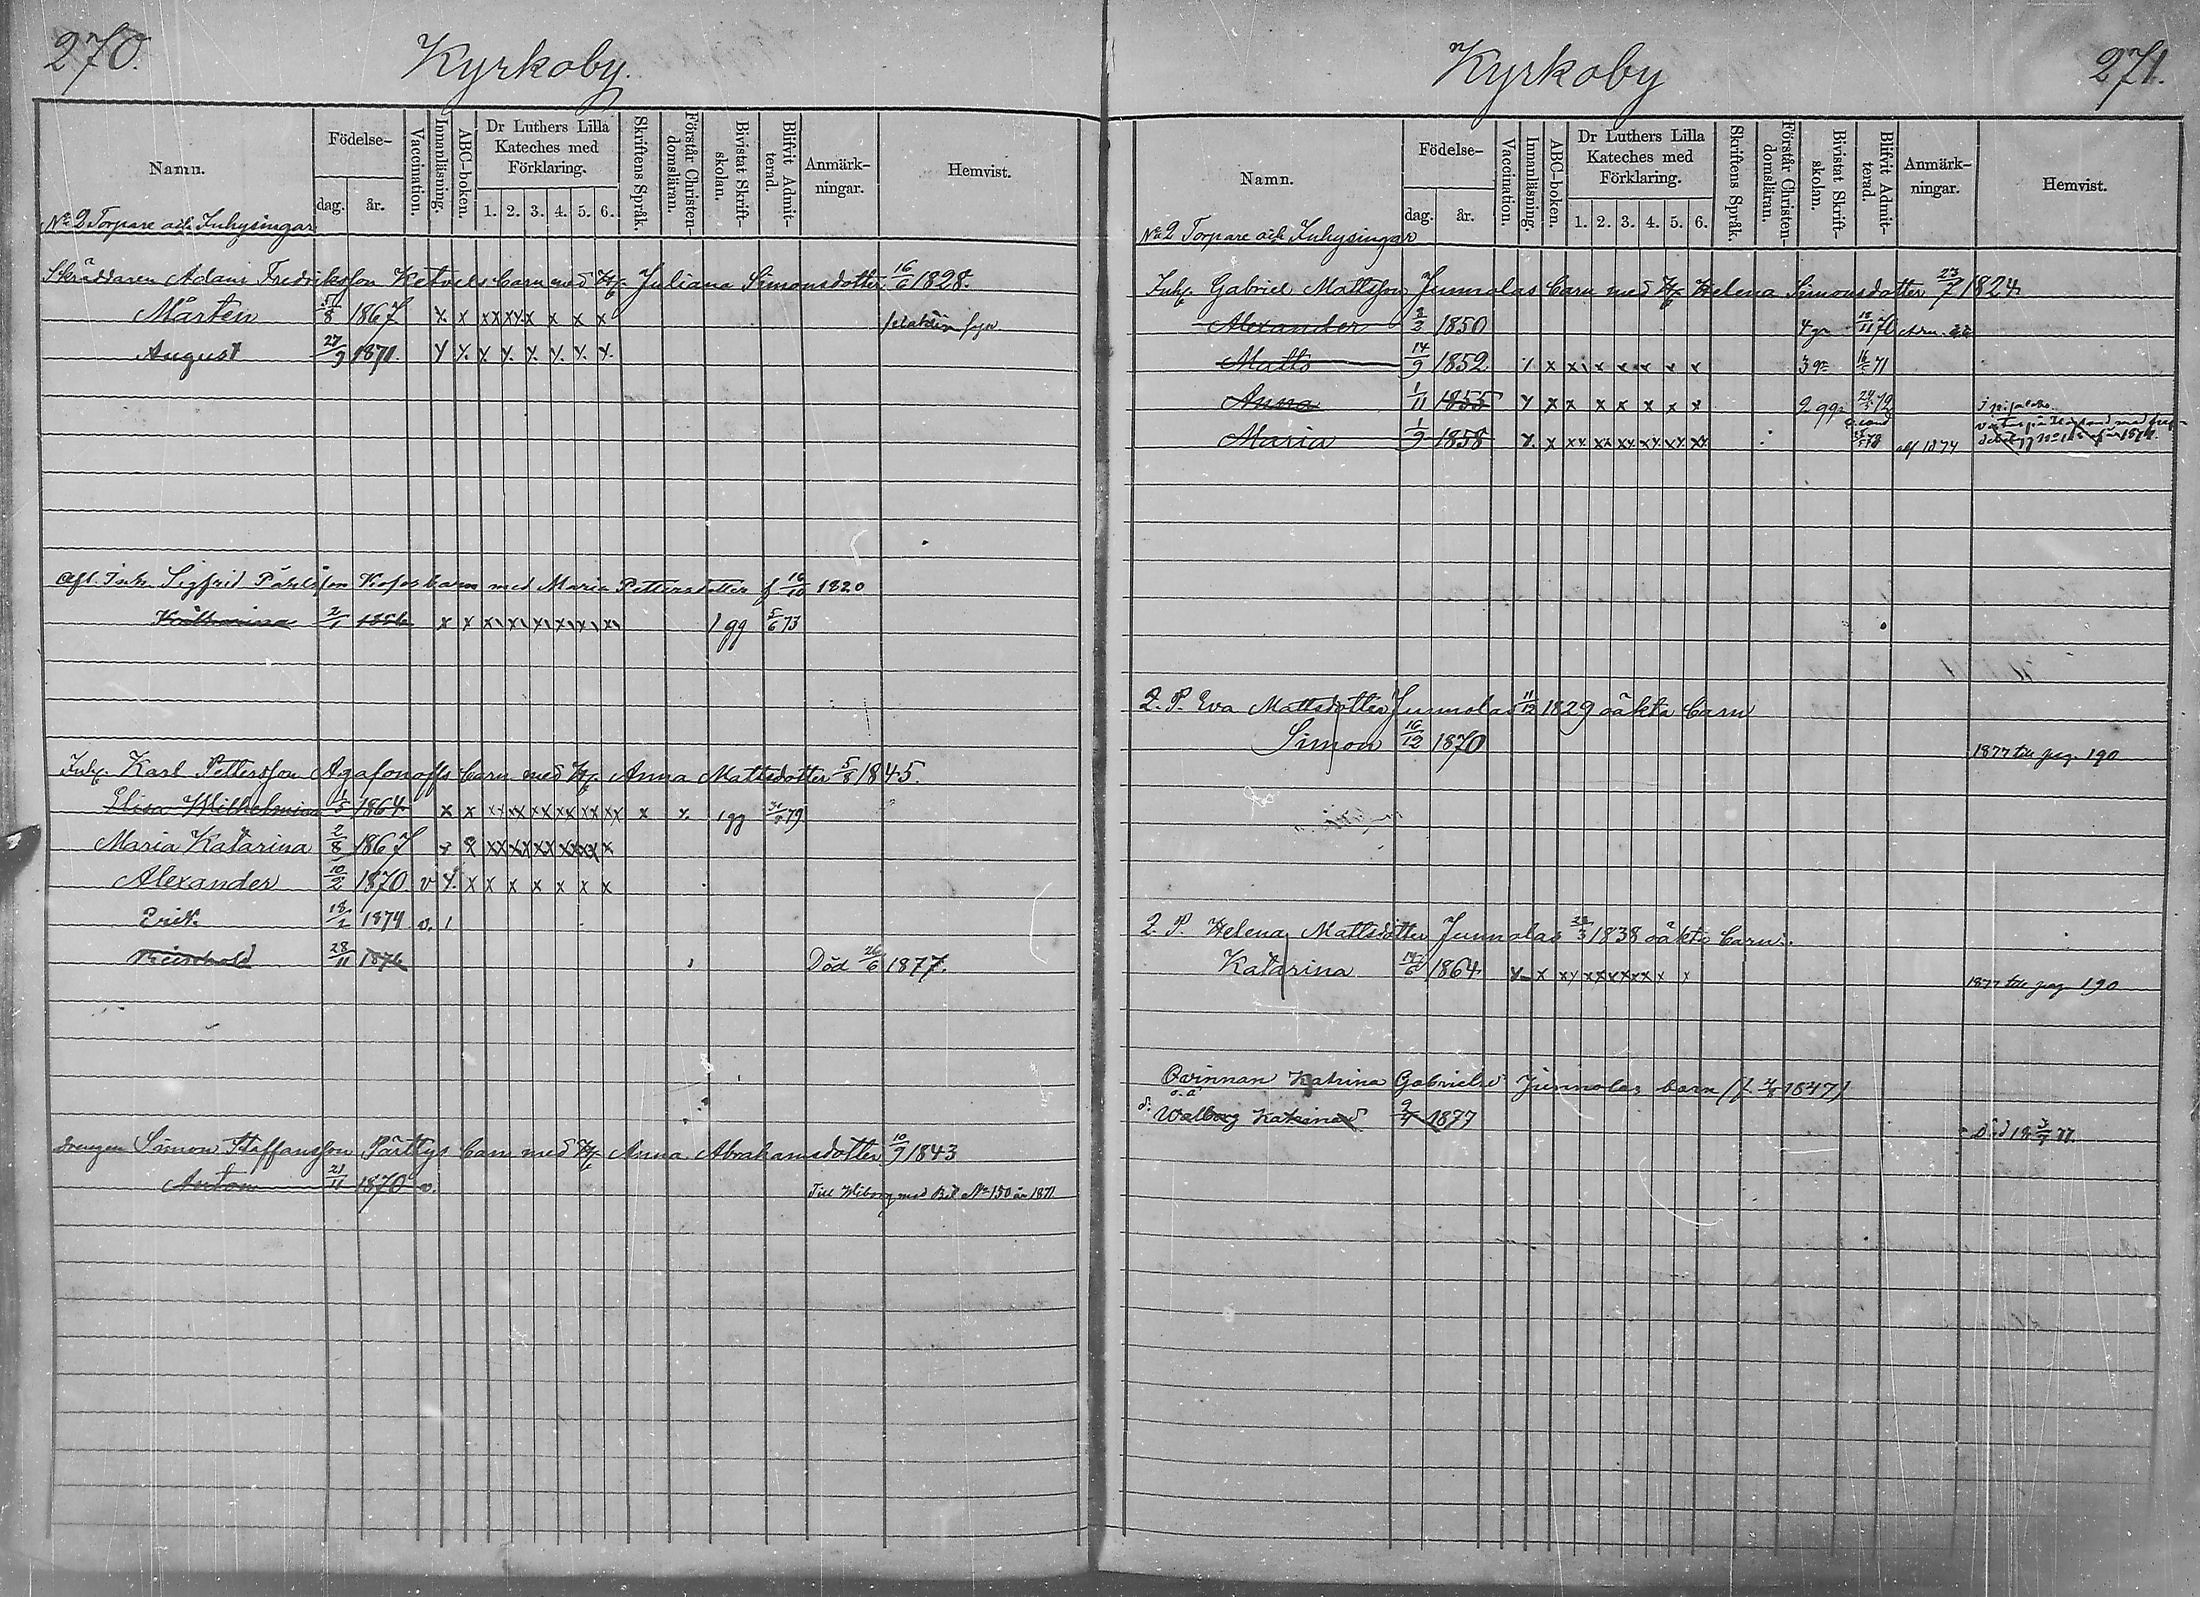 270.
Kyrkoby.
Namn.
Födelse-
dag.
år.
Vaccination.
Innanläsning.
ABC-boken.
Dr Luthers Lilla
Kateches med
Förklaring.
1. 2. 3. 4. 5. 6.
Skriftens Språk.
Förstår Christen-
domsläran.
Bivistat Skrift-
skolan.
Blifvit Admit-
terad.
Anmärk-
ningar.
Hemvist.
No 2 Torpare och Inhysingar
Skräddaren Adam Fredriksson Ketvels barn med H. Juliana Simonsdotter 16/6 1828.
Mårten 5/8 1867 x x xx xx x x x x
August 27/9 1871. x x. x. x. x. x. x. x.
Afl. Inh. Sigfrid Pärlsson barn med Maria Pettersdotter f 16/10 1820
2/1 x x 1 gg 5/6 73
Inh. Karl Pettersson Agafonoffs barn med H. Anna Mattsdotter 5/8 1845.
Elisa Wilhelmina 1864 x x xx xx xx xx xx xx x x 1 gg 79
Maria Katarina 2/8 1867
Alexander 10/2 1870 v x. x x x x x x x
Erik 18/2 1874 v. 1
28/11 1876 Död 26/6 1877.
drengen Simon Staffansson Pärttys barn med H. Anna Abrahamsdotter 10/9 1843
Anton 21/11 1870 v. Till Wiborg med Bet. No 150 år 1871
Kyrkoby
271.
Namn.
Födelse-
dag.
år.
Vaccination.
Innanläsning.
ABC-boken.
Dr Luthers Lilla
Kateches med
Förklaring.
1. 2. 3. 4. 5. 6.
Skriftens Språk.
Förstår Christen-
domsläran.
Bivistat Skrift-
skolan.
Blifvit Admit-
terad.
Anmärk-
ningar.
Hemvist.
No 2 Torpare och Inhysingar
Inh. Gabriel Mattsson Junnolas barn med H. Helena Simonsdotter 23/7 1824.
Alexander 8/2 1850 4 gr 18/11 70
Matts 14/9 1852 1 x x x x x x x 3 gr 71
Anna 1/11 1855 x x x x x x x x 2 ggr 72
Maria 1/9 1858 x. x xx xx xx xx xx xx 73 1874
Q. P. Eva Mattsdotter Junnolas 11/12 1829 oäkta barn
Simon 16/12 1870 1877 till pag. 190
Q. P. Helena Mattsdotter Junnolas 1838 oäkta barn.
Katarina 1864 1877 till pag 190
Qvinnan Katrina Gabrielsd Junnolas barn (f. 1847)
o. ä
d. Walborg Katrina 1877 Död 77